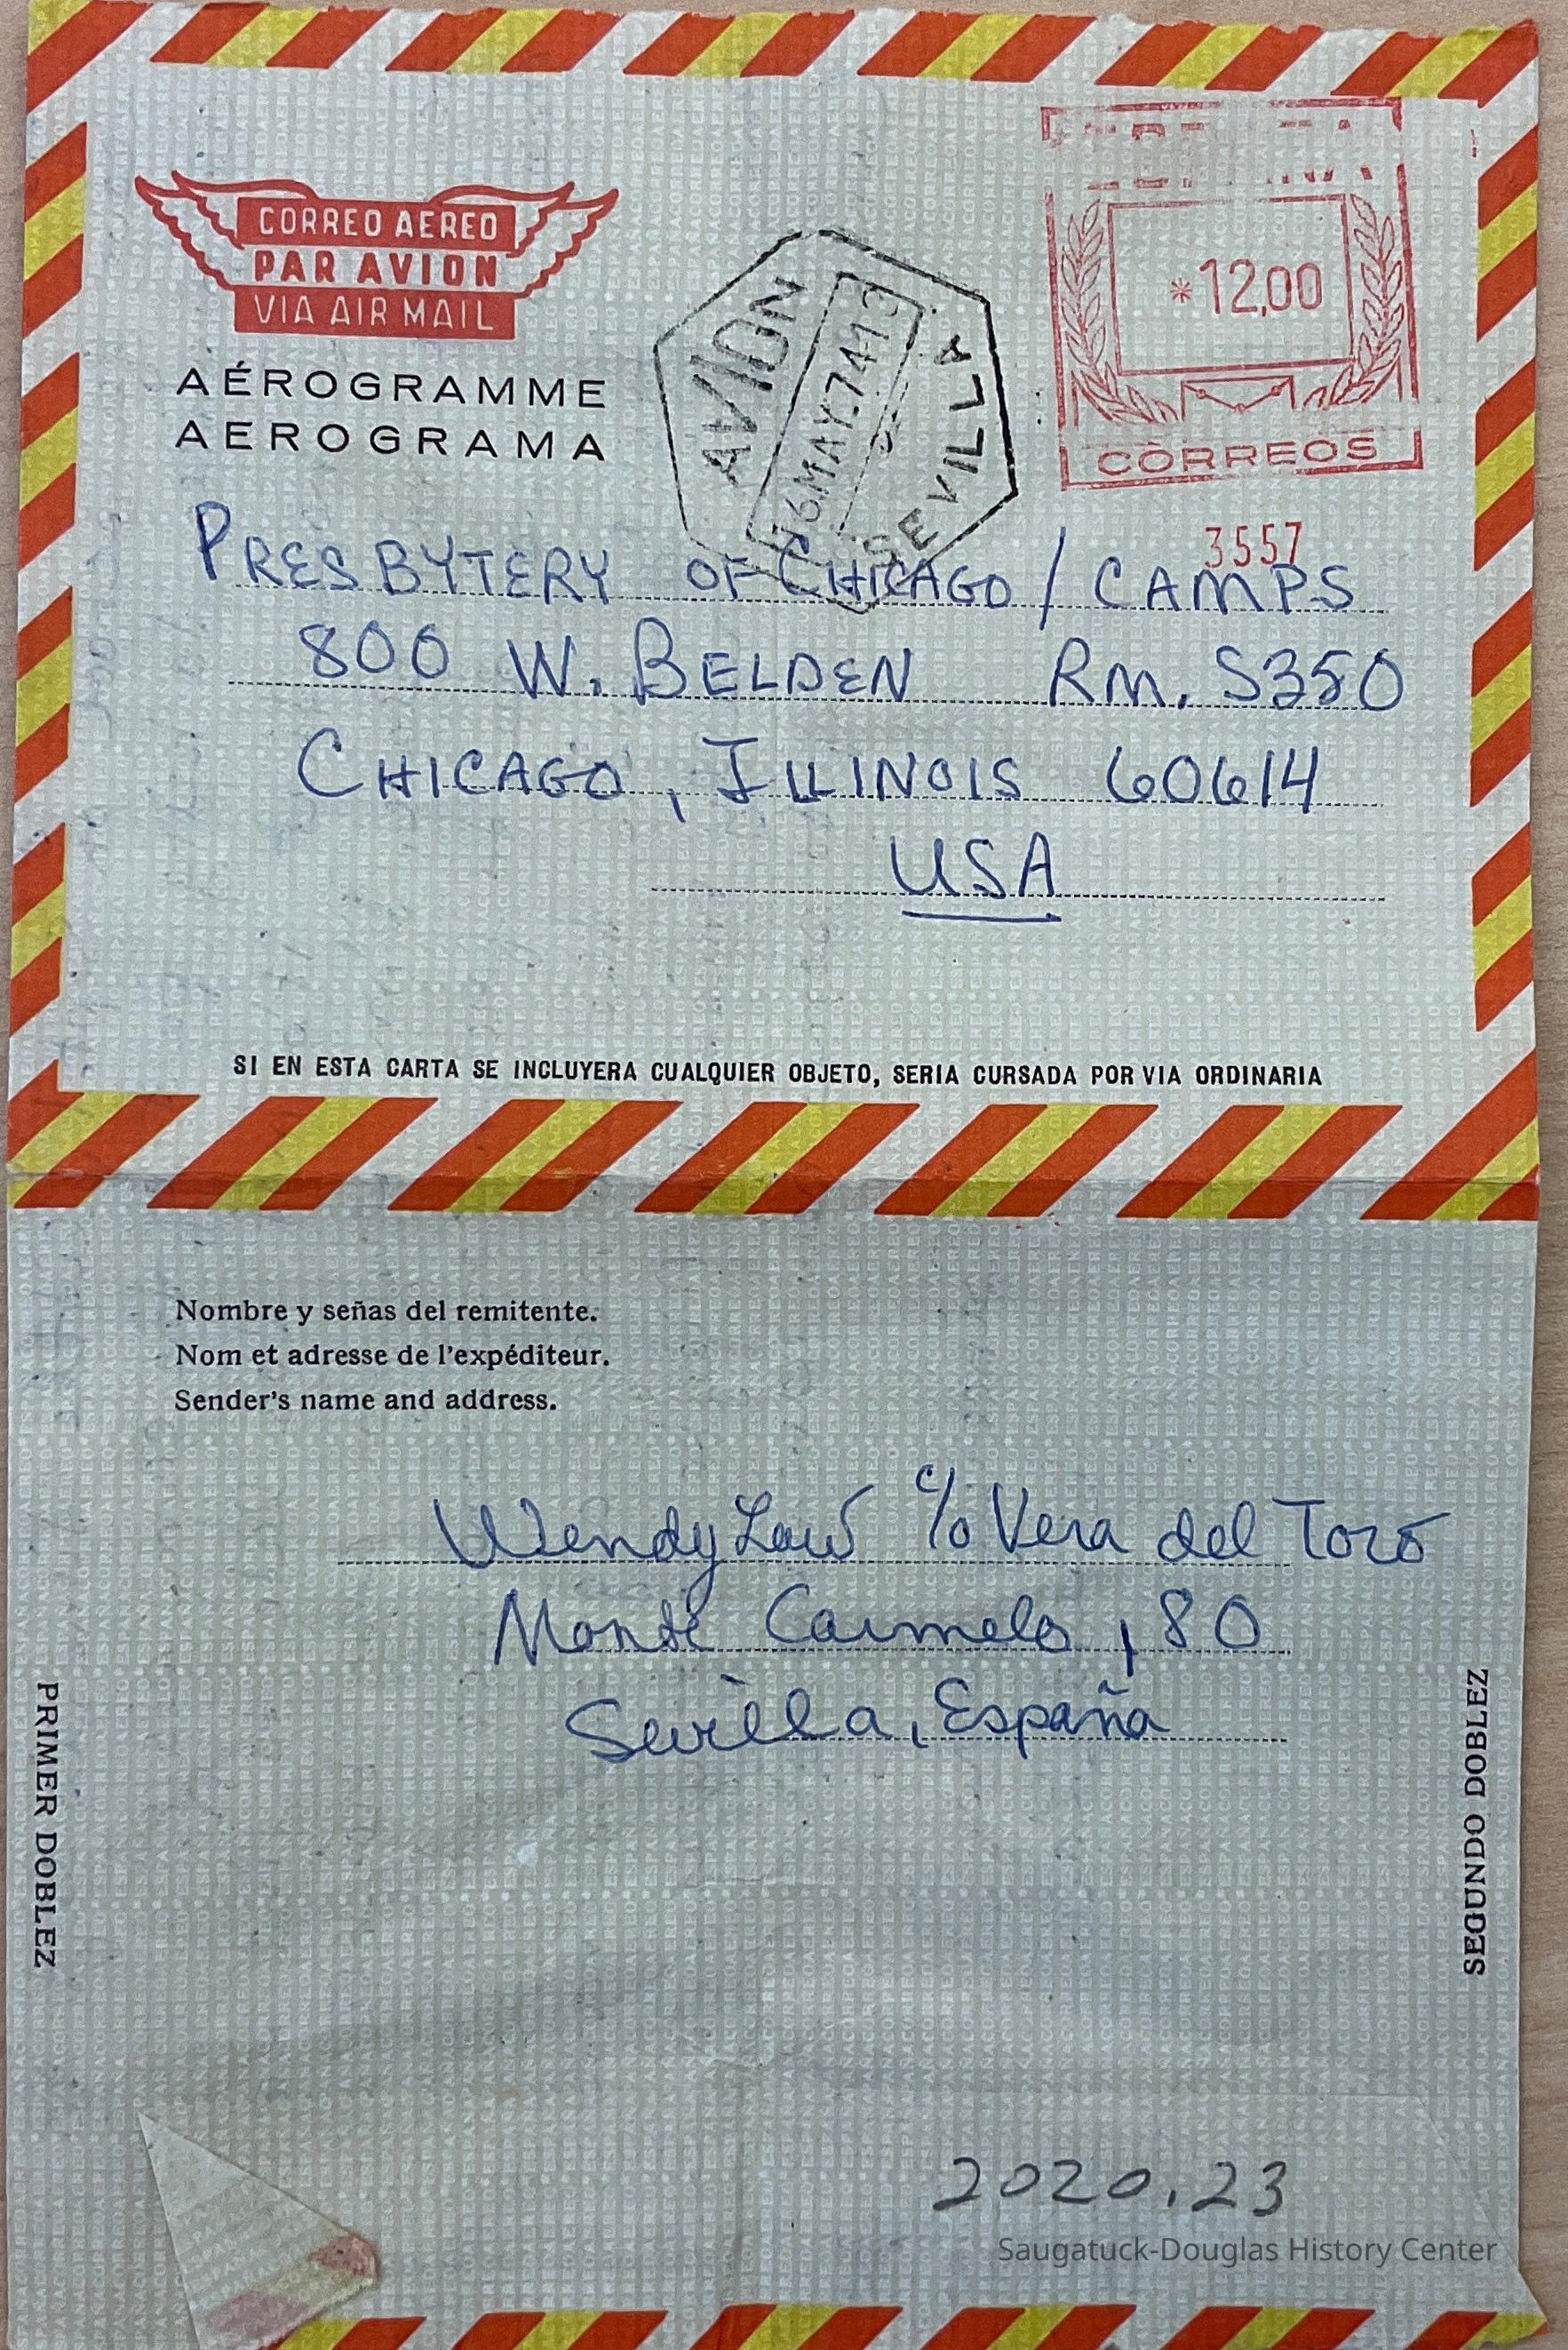 CORREO AEREO
PAR AVION
VIA AIR MAIL
AÉROGRAMME
AEROGRAMA
AVION
16 MAY. 74 13
SEVILLA
*12,00
CORREOS
3557
PRESBYTERY OF CHICAGO / CAMPS
800 W. BELDEN RM. S350
CHICAGO, ILLINOIS 60614
USA
SI EN ESTA CARTA SE INCLUYERA CUALQUIER OBJETO, SERIA CURSADA POR VIA ORDINARIA
Nombre y señas del remitente.
Nom et adresse de l'expéditeur.
Sender's name and address.
Wendy Law c/o Vera del Toro
Monte Carmelo, 80
Sevilla, España
PRIMER DOBLEZ
SEGUNDO DOBLEZ
2020.23
Saugatuck-Douglas History Center